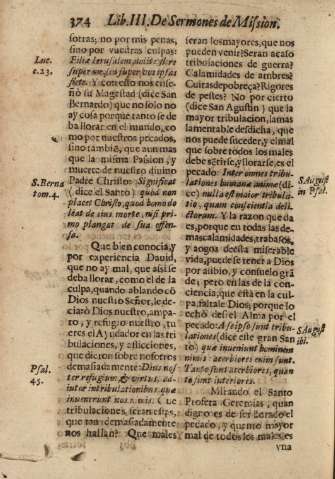 374 Lib. III. De Sermones de Mission.
sotras; no por mis penas,
sino por vuestras culpas:
Luc.
c. 23.
super me, sed super vos ipsas
flete. Y con esso nos ense-
ñó su Magestad (dice San
Bernardo) que no solo no
ay cosa porque tanto se de-
ba llorar en el mundo, co-
mo por nuestros pecados,
sino tambiē, que aun mas
que la misma Passion, y
muerte de nuestro divino
S. Berna
tom. 4.
Padre Christo: Significat
(dice el Santo) quod non
places Christo, quod homo do
leat de eius morte, nisi pri-
mo plangat de sua offen-
sa.
Que bien conocia, y
por experiencia David,
que no ay mal, que assi se
deba llorar, como el de la
culpa, quando ablandó
Dios nuestro Señor, le de-
claró Dios nuestro, ampa-
ro, y refugio nuestro, tu
eres el Ayudador en las tri-
bulaciones, y aflicciones,
que dieron sobre nosotros
Psal.
45.
demasiadamente: Deus nos-
ter refugium, & virtus, ad-
iutor in tribulationibus quæ
invenerunt nos nimis. Que
tribulaciones, seran estas,
que tan demasiadamente
nos hallan? Que males
seran los mayores, que nos
pueden venir? Seran acaso
tribulaciones de guerra?
Calamidades de ambres?
Cuitas de pobreça? Rigores
de pestes? No por cierto
(dice San Agustin) que la
mayor tribulacion, la mas
lamentable desdicha, que
nos puede suceder, y el mal
que sobre todos los males
debe sētirse, y llorarse, es el
pecado: Inter omnes tribu-
S. August
in Psal.
lationes humanæ animæ (di-
ce) nulla est maior tribula-
tio, quam conscientia deli-
ctorum. Y la razon que da
es, porque en todas las de-
mas calamidades, trabajos,
y agoga desta miserable
vida, puede se tener a Dios
por alibio, y consuelo grā
de; pero en las de la con-
ciencia, que está en la cul-
pa, falta le Dios, porque lo
echó de el Alma por el
pecado: A se ipso sunt tribu-
S. August
ibi.
lationes (dice este gran San
to) quæ inveniunt hominem
nimis: acerbiores nim sunt.
Tanto sunt acerbiores, quan
to sunt interiores.
Mirando el Santo
Profeta Geremias, quan
digno es de ser llorado el
pecado, y que no mayor
mal de todos los males, es
vna